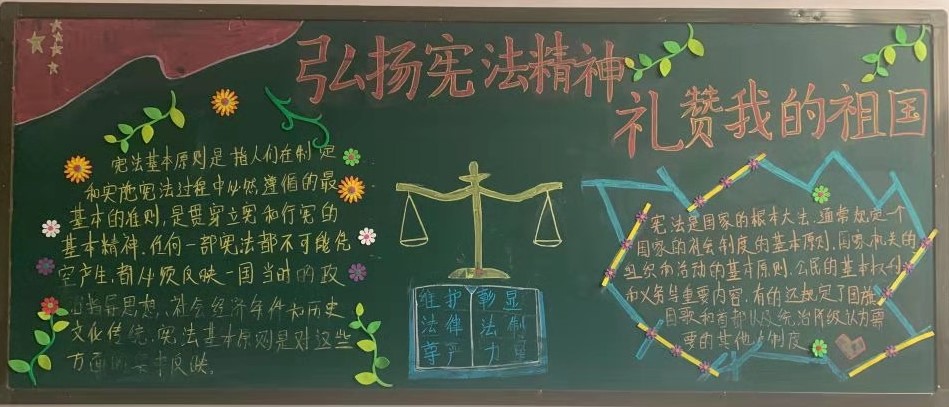 弘扬宪法精神
礼赞我的祖国
宪法基本原则是指人们在制定
和实施宪法过程中必然遵循的最
基本的准则,是贯穿立宪和行宪的
基本精神.任何一部宪法都不可能凭
空产生,都必须反映一国当时的政
指导思想、社会经济条件和历史
文化传统,宪法基本原则是对这些
方面的 反映.
维护
法律
尊严
彰显
法制
力量
宪法是国家的根本大法,通常规定一个
国家的社会制度的基本原则.国家机关的
组织和活动的基本原则.公民的基本权利
和义务等重要内容.有的还规定了国旗
国歌和首都以及统治阶级认为需
要的其他 制度